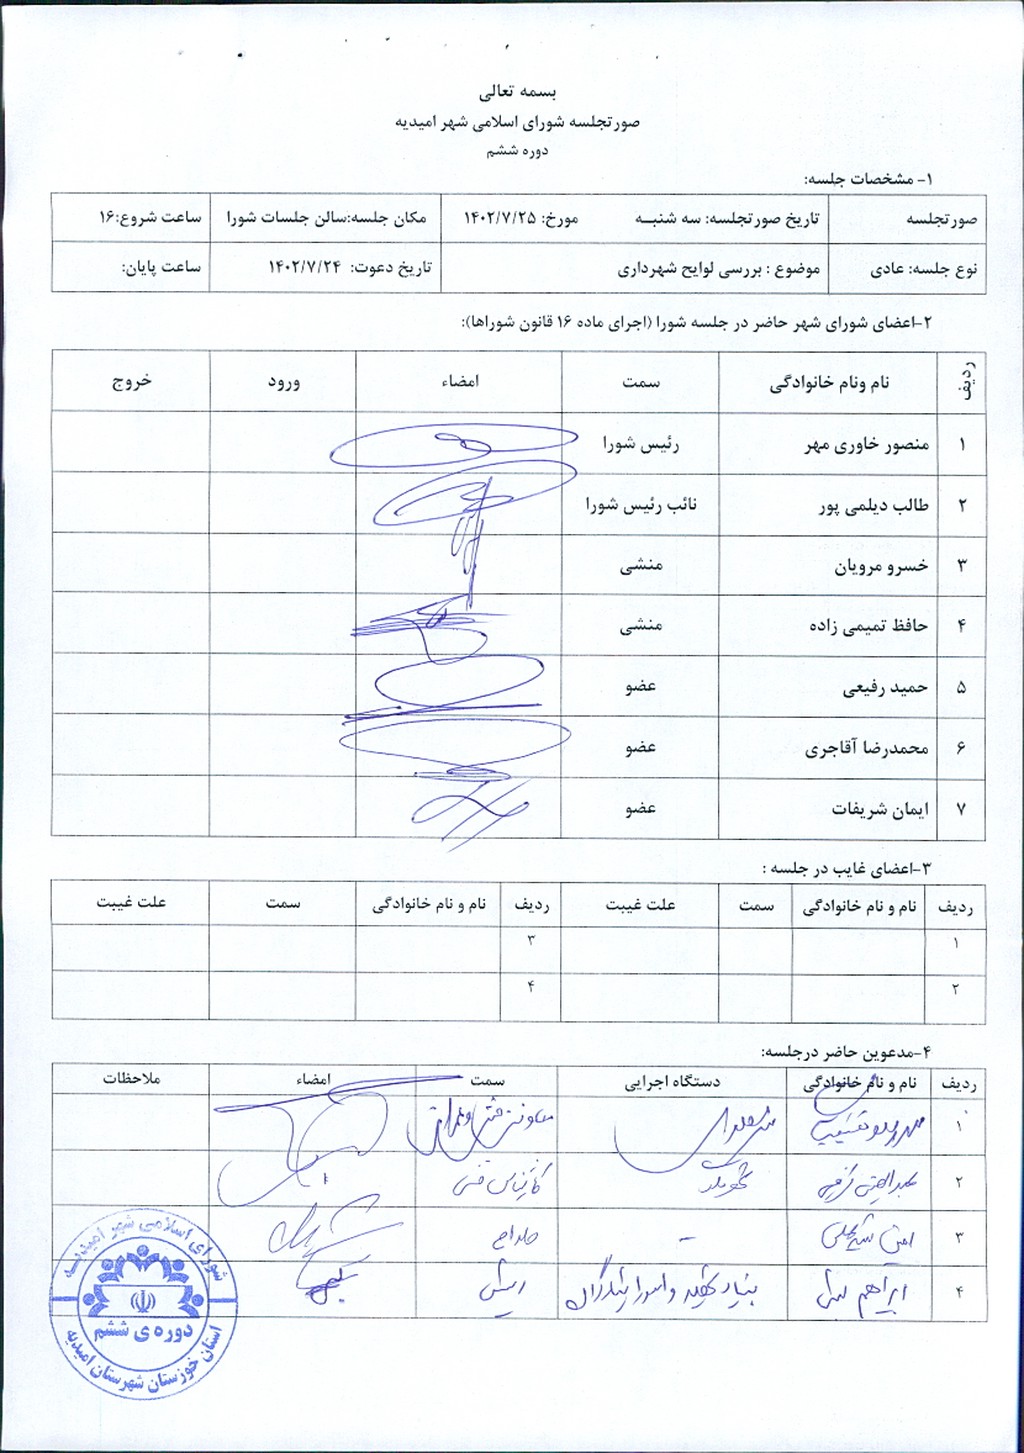 بسمه تعالی
صورتجلسه شورای اسلامی شهر امیدیه
دوره ششم
۱- مشخصات جلسه:
صورتجلسه تاریخ صورتجلسه: سه شنبه مورخ: ۱۴۰۲/۷/۲۵ مکان جلسه:سالن جلسات شورا ساعت شروع:۱۶
نوع جلسه: عادی موضوع : بررسی لوایح شهرداری تاریخ دعوت: ۱۴۰۲/۷/۲۴ ساعت پایان:
۲-اعضای شورای شهر حاضر در جلسه شورا (اجرای ماده ۱۶ قانون شوراها):
ردیف نام ونام خانوادگی سمت امضاء ورود خروج
۱ منصور خاوری مهر رئیس شورا
۲ طالب دیلمی پور نائب رئیس شورا
۳ خسرو مرویان منشی
۴ حافظ تمیمی زاده منشی
۵ حمید رفیعی عضو
۶ محمدرضا آقاجری عضو
۷ ایمان شریفات عضو
۳-اعضای غایب در جلسه :
ردیف نام و نام خانوادگی سمت علت غیبت ردیف نام و نام خانوادگی سمت علت غیبت
۱ ۳
۲ ۴
۴-مدعوین حاضر درجلسه:
ردیف نام و نام خانوادگی دستگاه اجرایی سمت امضاء ملاحظات
۱ شهرداری معاونت فنی و عمرانی
۲ شهرداری کارشناس فنی
۳ امین -
۴ ابراهیم بنیاد شهید و امور ایثارگران رئیس
شورای اسلامی شهر امیدیه
دوره ی ششم
استان خوزستان شهرستان امیدیه